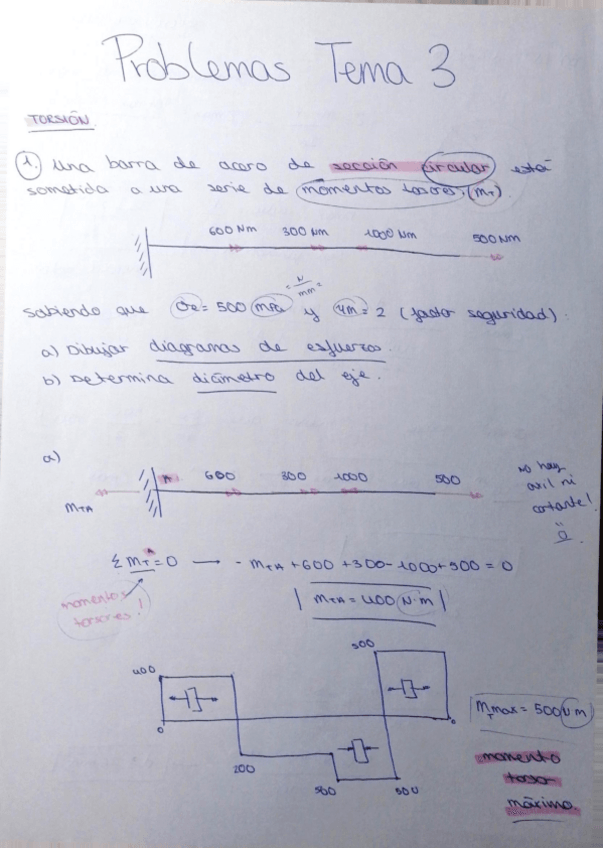 Problemas Tema 3
TORSIÓN
1. Una barra de acero de sección circular está
sometida a una serie de momentos torsores. (MT).
600 Nm 300 Nm 1000 Nm 500 Nm
= N/mm² =
Sabiendo que σe = 500 MPa y γm = 2 (factor seguridad).
a) Dibujar diagramas de esfuerzo.
b) Determina diámetro del eje.
a)
A 600 300 1000 500
MTA
no hay
axil ni
cortante!
Σ MT^A = 0 → - MTA + 600 + 300 - 1000 + 500 = 0
momentos
torsores!
| MTA = 400 N·m |
400
500
0
0
200
500
500
MT max = 500 Nm
momento
torsor
máximo.